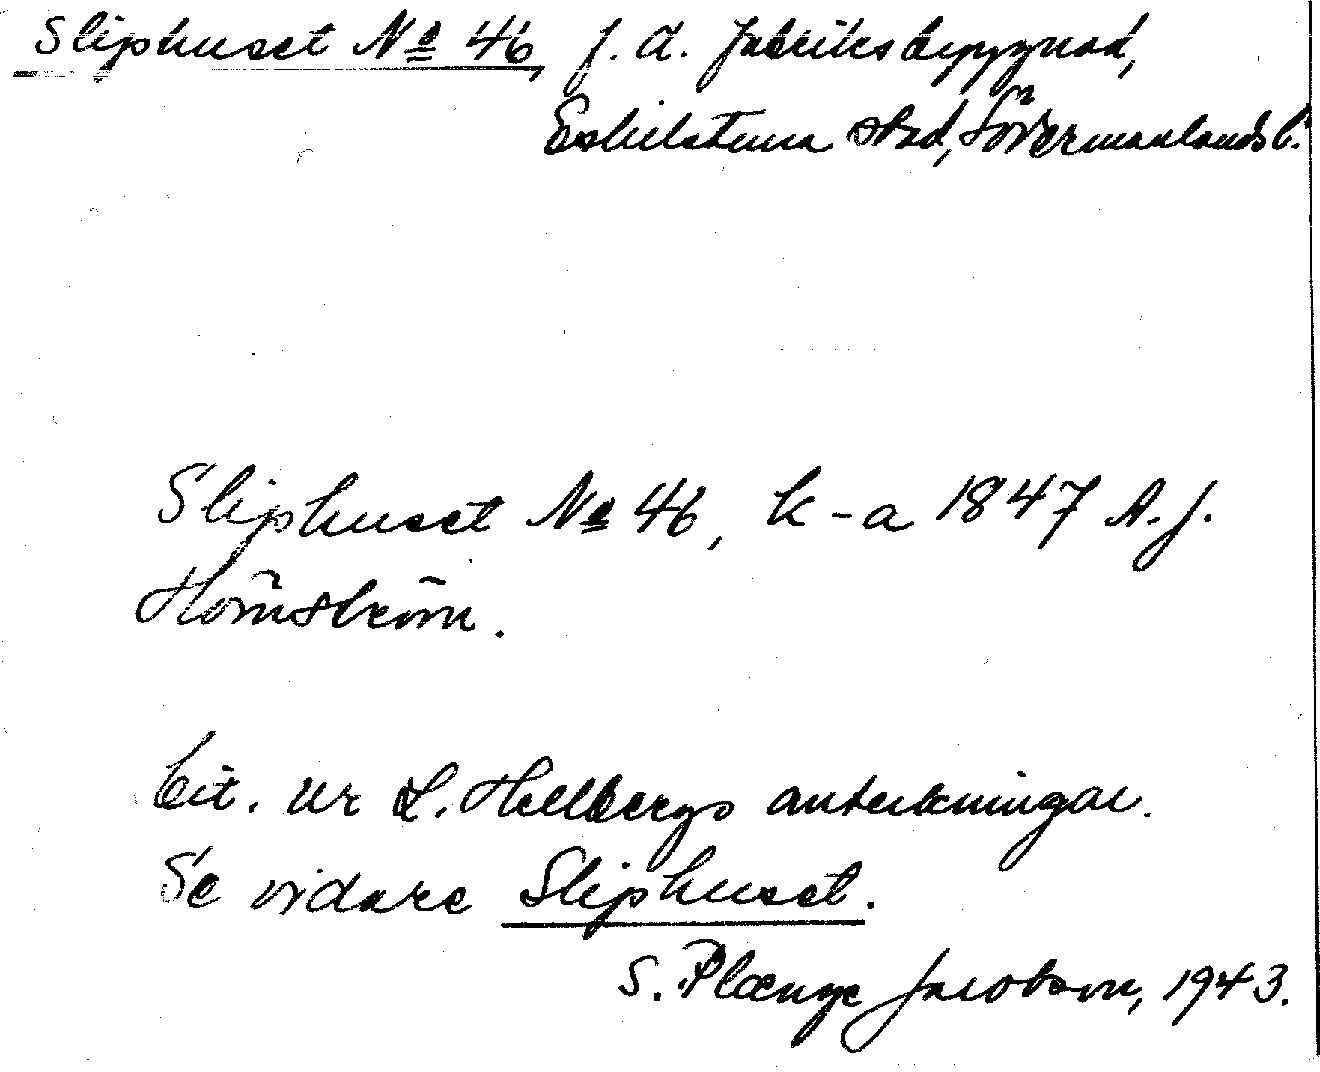 Sliphuset No 46, f. d. fabriksbyggnad,
Eskilstuna stad, Södermanlands l.
Sliphuset No 46, k-a 1847 A. J.
Hörnström.
Cit. ur L. Hellbergs anteckningar.
Se vidare Sliphuset.
S. Plænge Jacobson, 1943.